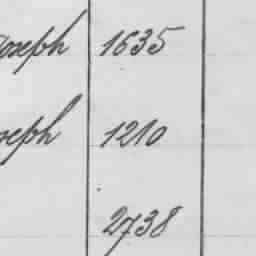 Joseph 1635
Joseph 1210
2738